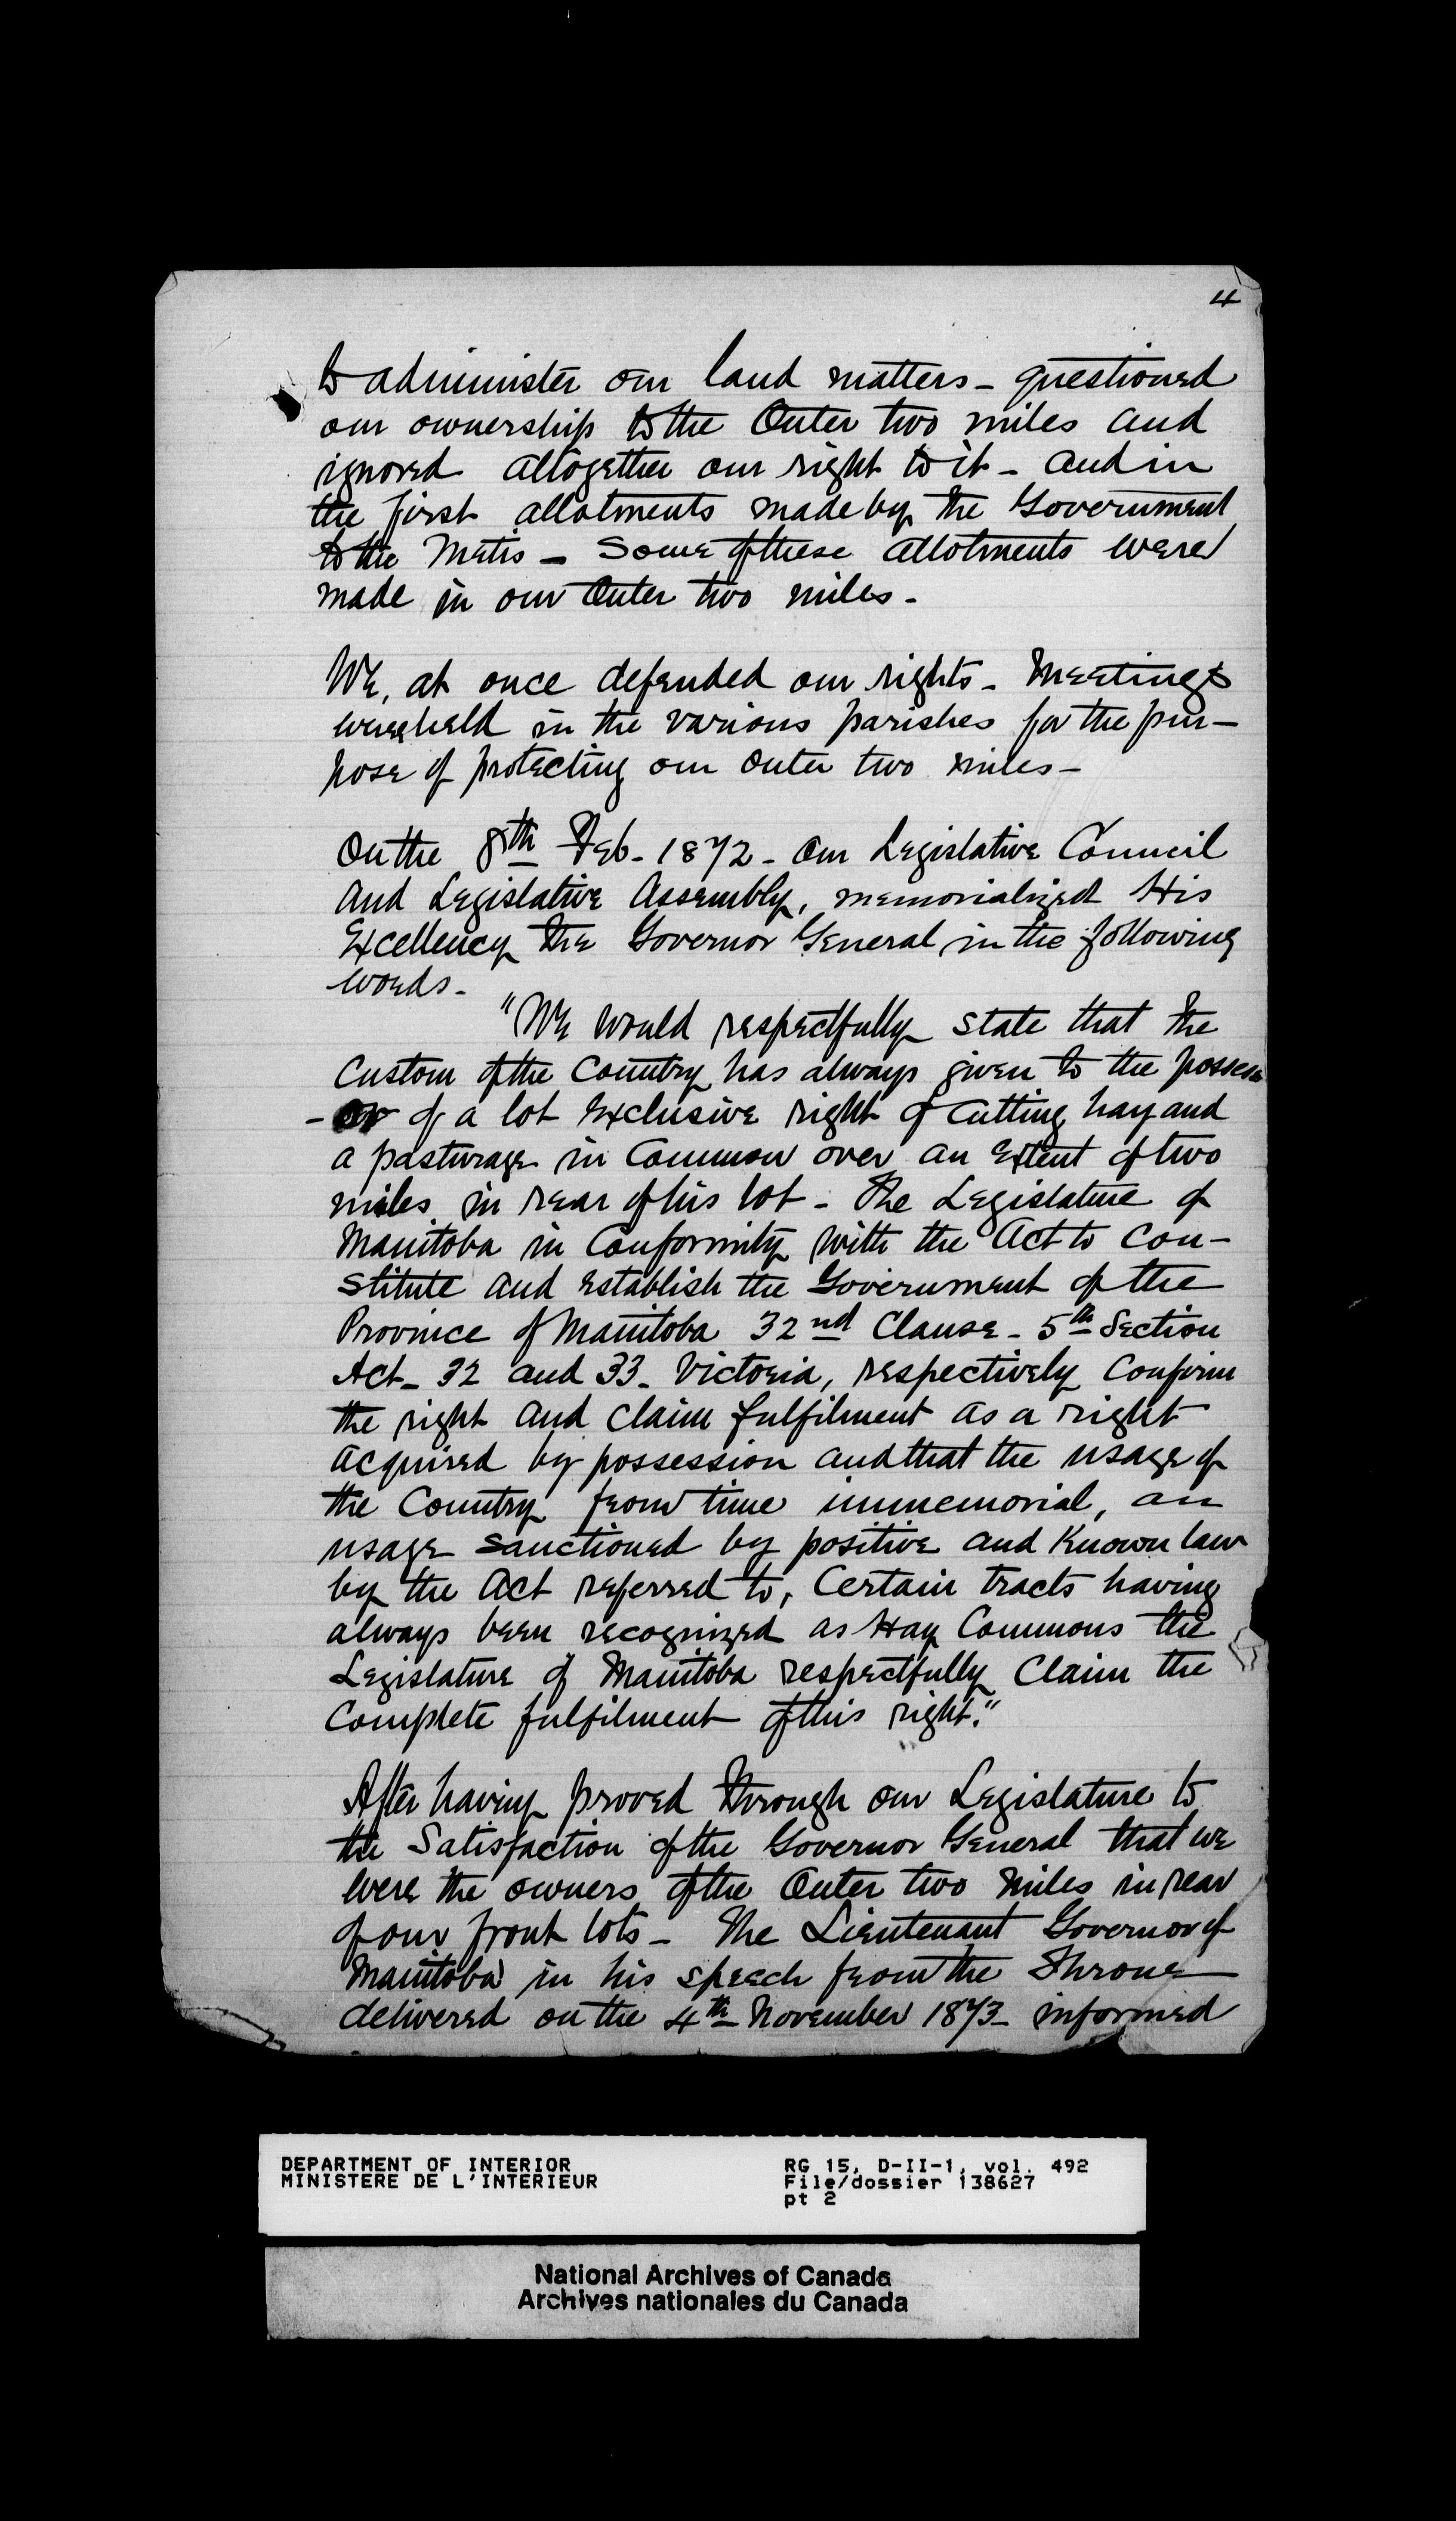 4
to administer our land matters - questioned
our ownership to the Outer two miles and
ignored altogether our right to it - and in
the first allotments made by the Government
to the Metis - Some of these allotments were
made in our Outer two miles -
We, at once defended our rights - Meetings
were held in the various parishes for the pur-
pose of protecting our outer two miles -
On the 8th Feb - 1872 - Our Legislative Council
and Legislative Assembly, memorialized His
Excellency the Governor General in the following
words -
"We would respectfully state that the
Custom of the Country has always given to the possess
-or of a lot Exclusive right of Cutting hay and
a pasturage in Common over an Extent of two
miles in rear of his lot - The Legislature of
Manitoba in Conformity with the Act to Con-
stitute and Establish the Government of the
Province of Manitoba 32nd Clause - 5th Section
Act - 32 and 33 - Victoria, respectively Confirm
the right and Claim fulfilment as a right
acquired by possession and that the usage of
the Country from time immemorial, an
usage Sanctioned by positive and Known law
by the Act referred to, Certain tracts having
always been recognized as Hay Commons the
Legislature of Manitoba respectfully Claim the
Complete fulfilment of this right."
After having proved through our Legislature to
the Satisfaction of the Governor General that we
were the owners of the Outer two miles in rear
of our front lots - The Lieutenant Governor of
Manitoba in his speech from the Throne
delivered on the 4th November 1873 - informed
DEPARTMENT OF INTERIOR
MINISTERE DE L'INTERIEUR
RG 15, D-II-1, vol. 492
File/dossier 138627
pt 2
National Archives of Canada
Archives nationales du Canada